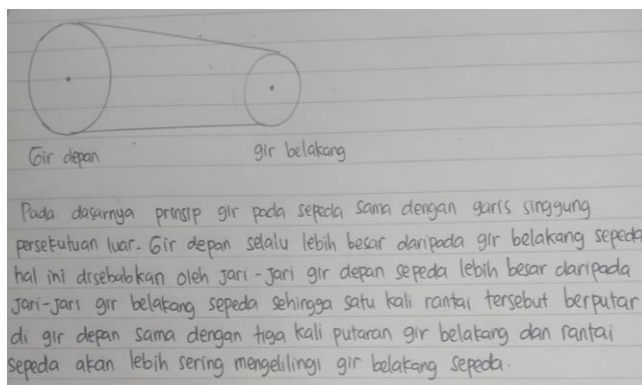 Gir depan
gir belakang
Pada dasarnya prinsip gir pada sepeda sama dengan garis singgung
persekutuan luar. Gir depan selalu lebih besar daripada gir belakang sepeda
hal ini disebabkan oleh jari-jari gir depan sepeda lebih besar daripada
jari-jari gir belakang sepeda sehingga satu kali rantai tersebut berputar
di gir depan sama dengan tiga kali putaran gir belakang dan rantai
sepeda akan lebih sering mengelilingi gir belakang sepeda.